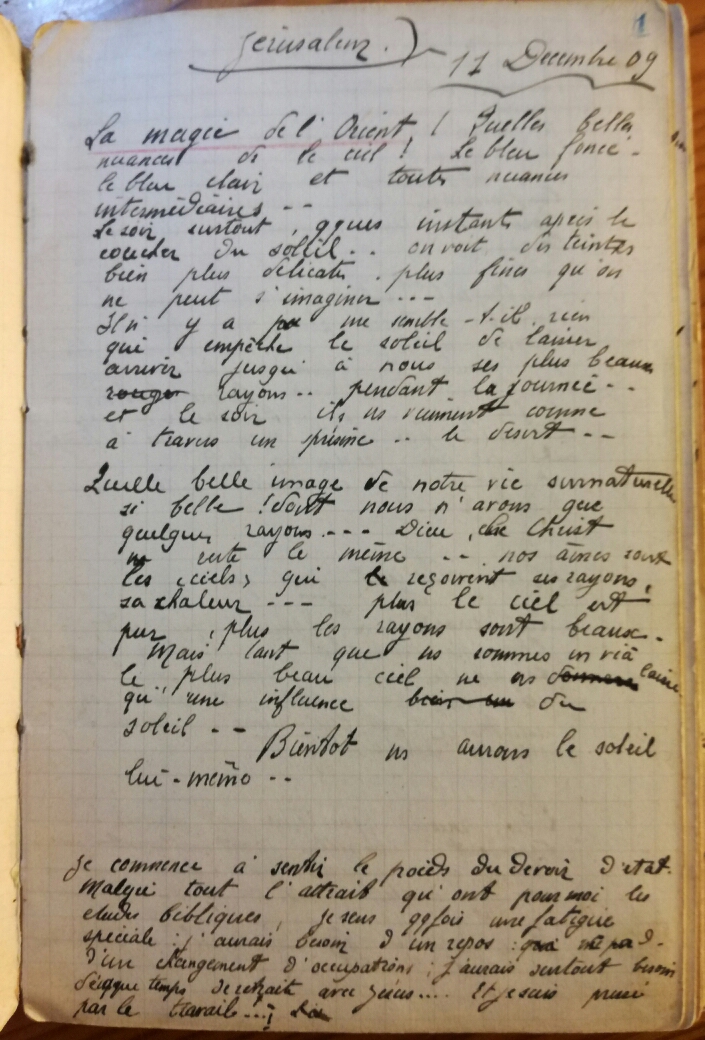 1
Jérusalem.
11 Decembre 09
La magie de l'Orient ! Quelles belles
nuances de le ciel ! Le bleu foncé -
le bleu clair et toutes nuances
intermédiaires --
Le soir surtout, qques instants après le
coucher du soleil.. on voit des teintes
bien plus délicates. plus fines qu'on
ne peut s'imaginer ---
Il n'y a me semble-t-il rien
qui empêche le soleil de laisser
arriver jusqu'à nous ses plus beaux
rouges rayons.. pendant la journée --
et le soir ils ns viennent comme
à travers un prisme .. le desert --
Quelle belle image de notre vie surnaturelle
si belle ! dont nous n'avons que
quelques rayons --- Dieu, le Christ
reste le même -- nos âmes sont
les "ciels" qui reçoivent ses rayons,
sa chaleur --- plus le ciel est
pur, plus les rayons sont beaux.
Mais tant que ns sommes in via
le plus beau ciel ne ns donnera laisse
qu'une influence du
soleil --
Bientôt ns aurons le soleil
lui-même --
Je commence à sentir le poids du devoir d'etat.
Malgré tout l'attrait qu'ont pour moi les
etudes bibliques, je sens qqfois une fatigue
spéciale : j'aurais besoin d'un repos :
d'un changement d'occupations ; j'aurais surtout besoin
de qque temps de retraite avec Jésus.... Et je suis pressé
par le travail...;